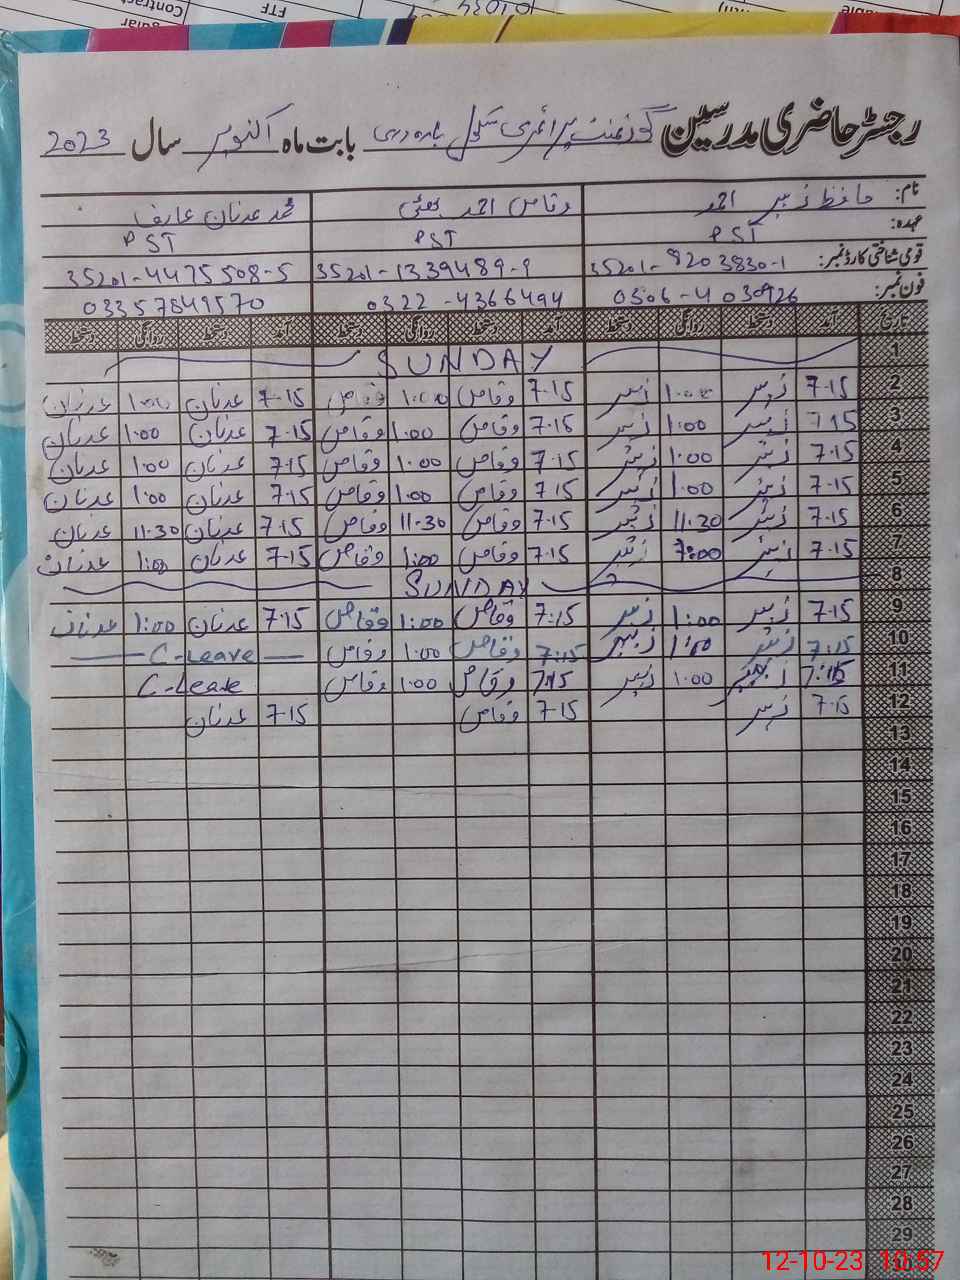 رجسٹر حاضری مدرسین گورنمنٹ پرائمری سکول بابت ماہ اکتوبر سال 2023
نام: حافظ زبیر احمد وقاص احمد بھٹی محمد عدنان عارف
عہدہ: PST PST PST
قومی شناختی کارڈ نمبر: 35201-8203830-1 35201-1339489-9 35201-4475508-5
فون نمبر: 0306-4030926 0322-4366494 03357849570
تاریخ آمد دستخط روانگی دستخط آمد دستخط روانگی دستخط آمد دستخط روانگی دستخط
1 SUNDAY
2 7.15 زبیر 1.00 زبیر 7.15 وقاص 1.00 وقاص 7.15 عدنان 1.00 عدنان
3 7.15 زبیر 1.00 زبیر 7.15 وقاص 1.00 وقاص 7.15 عدنان 1.00 عدنان
4 7.15 زبیر 1.00 زبیر 7.15 وقاص 1.00 وقاص 7.15 عدنان 1.00 عدنان
5 7.15 زبیر 1.00 زبیر 7.15 وقاص 1.00 وقاص 7.15 عدنان 1.00 عدنان
6 7.15 زبیر 11.30 زبیر 7.15 وقاص 11.30 وقاص 7.15 عدنان 11.30 عدنان
7 7.15 زبیر 1:00 زبیر 7.15 وقاص 1:00 وقاص 7.15 عدنان 1:00 عدنان
8 SUNDAY
9 7.15 زبیر 1:00 زبیر 7:15 وقاص 1:00 وقاص 7.15 عدنان 1:00 عدنان
10 7:15 زبیر 1:00 زبیر 7:15 وقاص 1:00 وقاص C-Leave
11 7:15 زبیر 1.00 زبیر 7.15 وقاص 1.00 وقاص C-Leave
12 7.15 زبیر 7.15 وقاص 7.15 عدنان
13
14
15
16
17
18
19
20
21
22
23
24
25
26
27
28
29
12-10-23 10:57